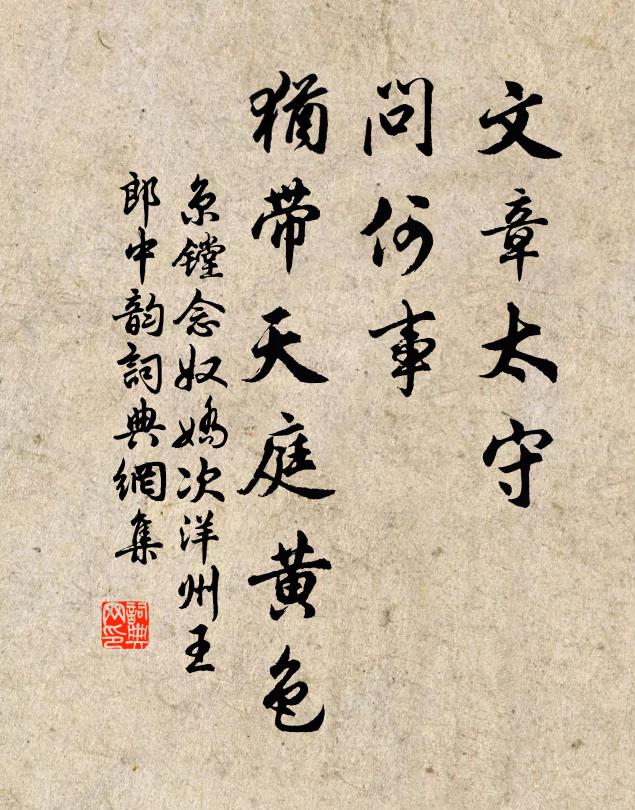 文章太守
問何事
猶帶天庭黃色
京鏜念奴嬌次洋州王
郎中韵詞典網集
詞典网印